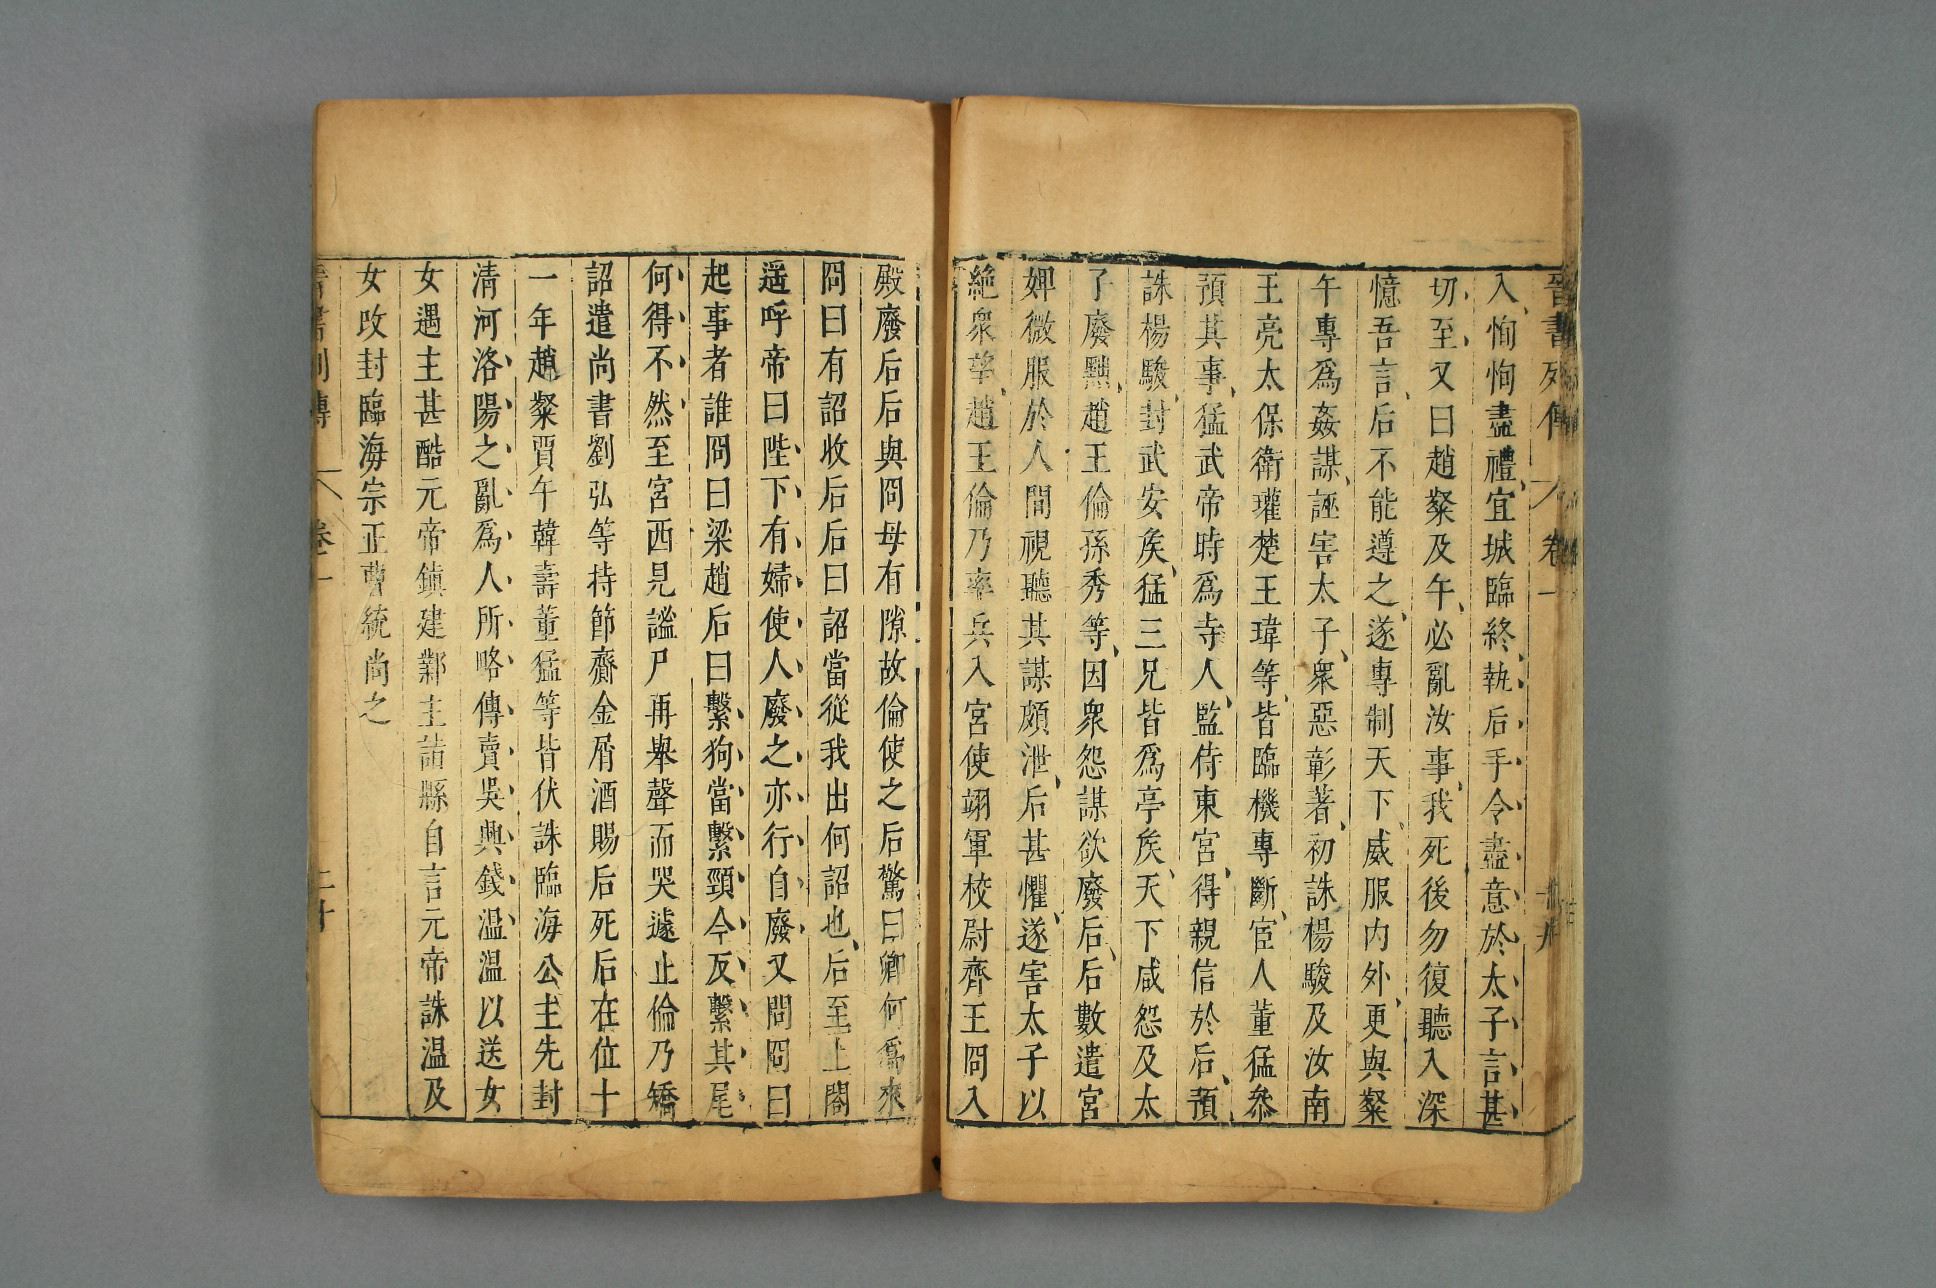 晉書列傳 卷一
入恂恂盡禮宜城臨終執后手令盡意於太子言甚
切至又曰趙粲及午必亂汝事我死後勿復聽入深
憶吾言后不能遵之遂專制天下威服内外更與粲
午專爲姦謀誣害太子衆惡彰著初誅楊駿及汝南
王亮太保衛瓘楚王瑋等皆臨機專斷宦人董猛參
預其事猛武帝時爲寺人監侍東宮得親信於后預
誅楊駿封武安矦猛三兄皆爲亭矦天下咸怨及太
子廢黜趙王倫孫秀等因衆怨謀欲廢后后數遣宮
婢微服於人間視聽其謀頗泄后甚懼遂害太子以
絶衆望趙王倫乃率兵入宮使翊軍校尉齊王冏入
殿廢后后與冏母有隙故倫使之后驚曰卿何爲來
冏曰有詔收后后曰詔當從我出何詔也后至上閤
遥呼帝曰陛下有婦使人廢之亦行自廢又問冏曰
起事者誰冏曰梁趙后曰繫狗當繫頸今反繫其尾
何得不然至宮西見謐尸再舉聲而哭遽止倫乃矯
詔遣尚書劉弘等持節齎金屑酒賜后死后在位十
一年趙粲賈午韓壽董猛等皆伏誅臨海公主先封
清河洛陽之亂爲人所略傳賣吳興錢温温以送女
女遇主甚酷元帝鎮建鄴主詣縣自言元帝誅温及
女改封臨海宗正曹統尚之
晉書列傳 卷一 二十